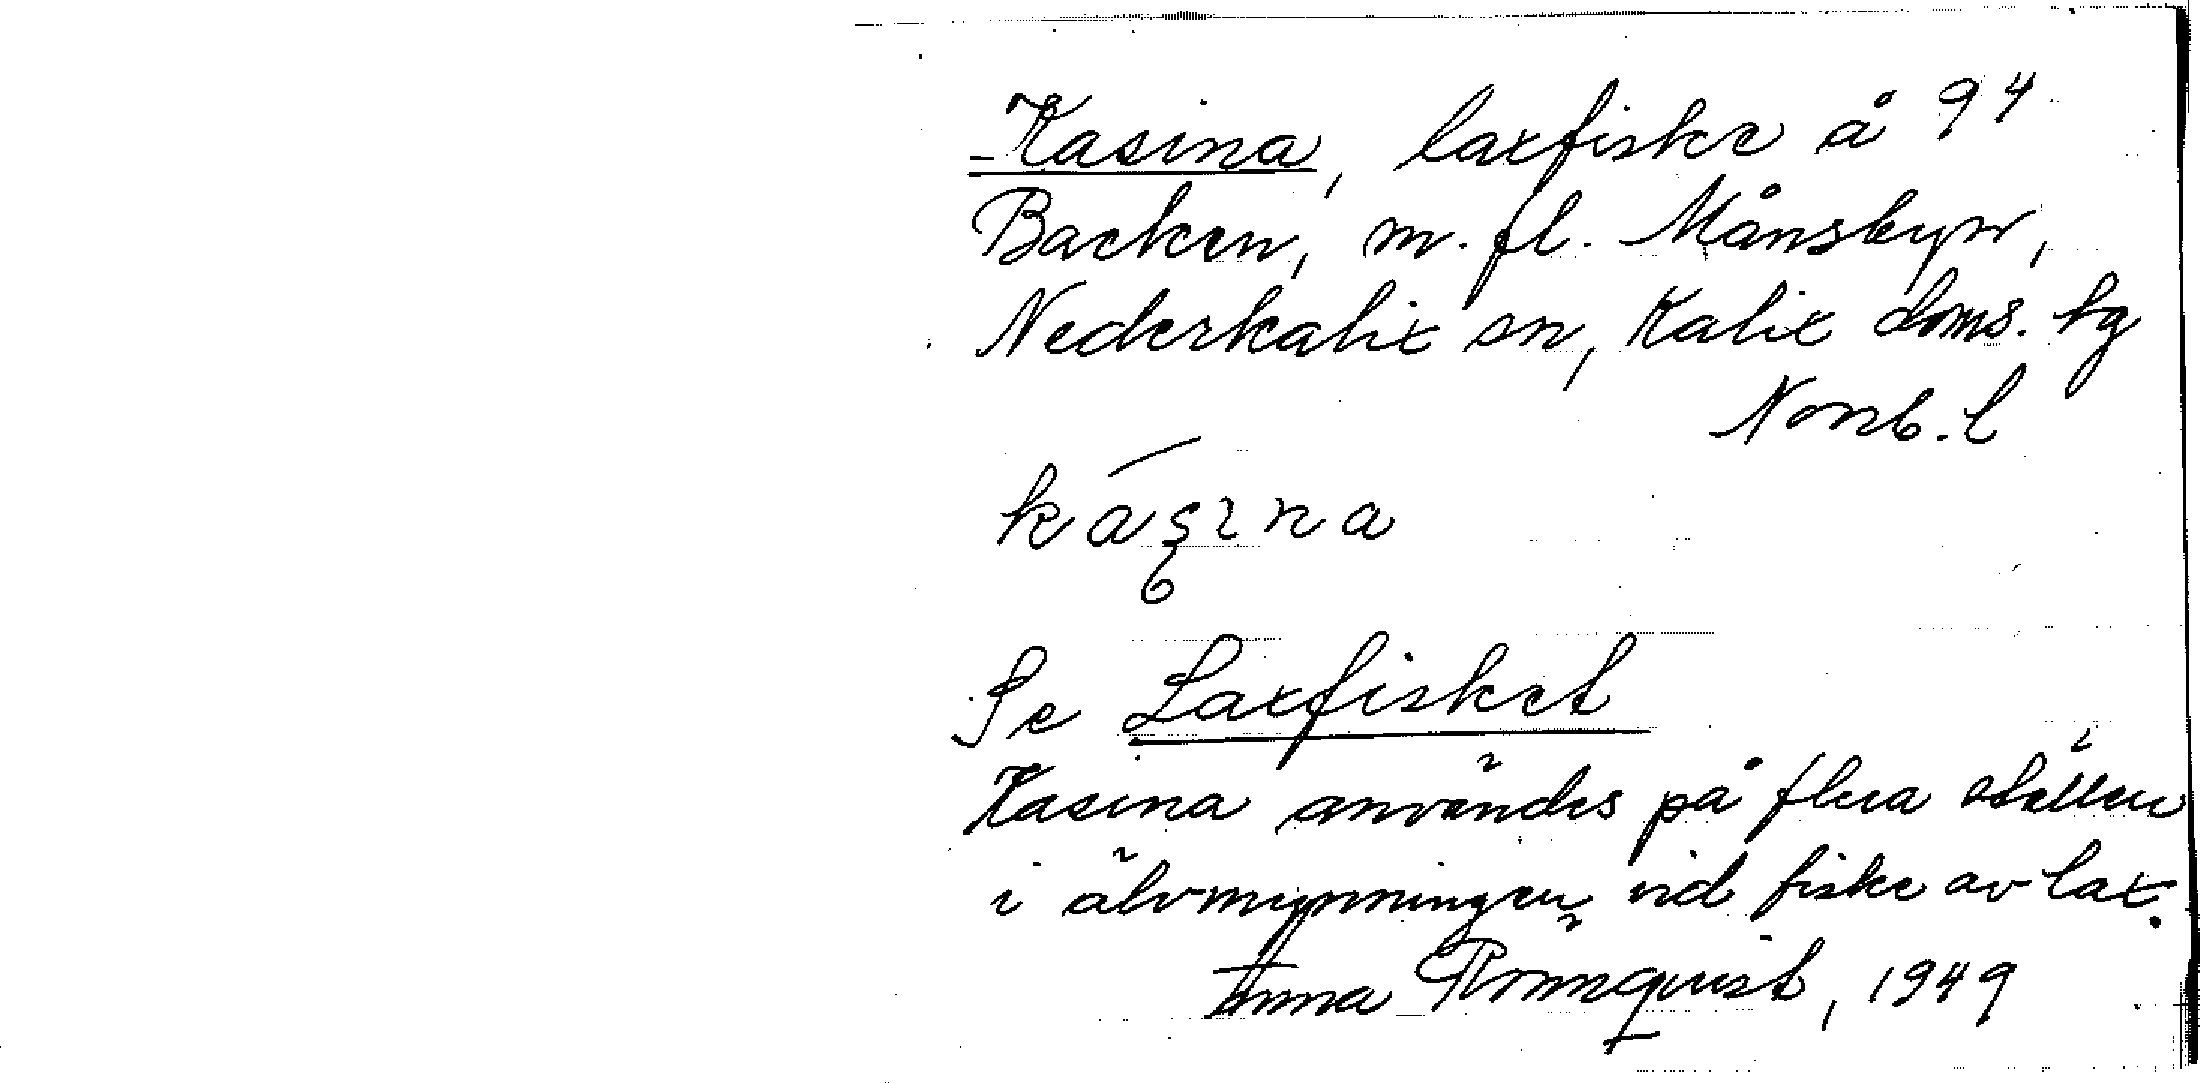 Kasina, laxfiske å 94
Backen, m. fl. Månsbyn,
Nederkalix sn, Kalix doms. tg
Norrb. l
kásina
Se Laxfisket
Kasina användes på flera ställen
i älvmynningen vid fiske av lax.
Anna Rönnquist, 1949